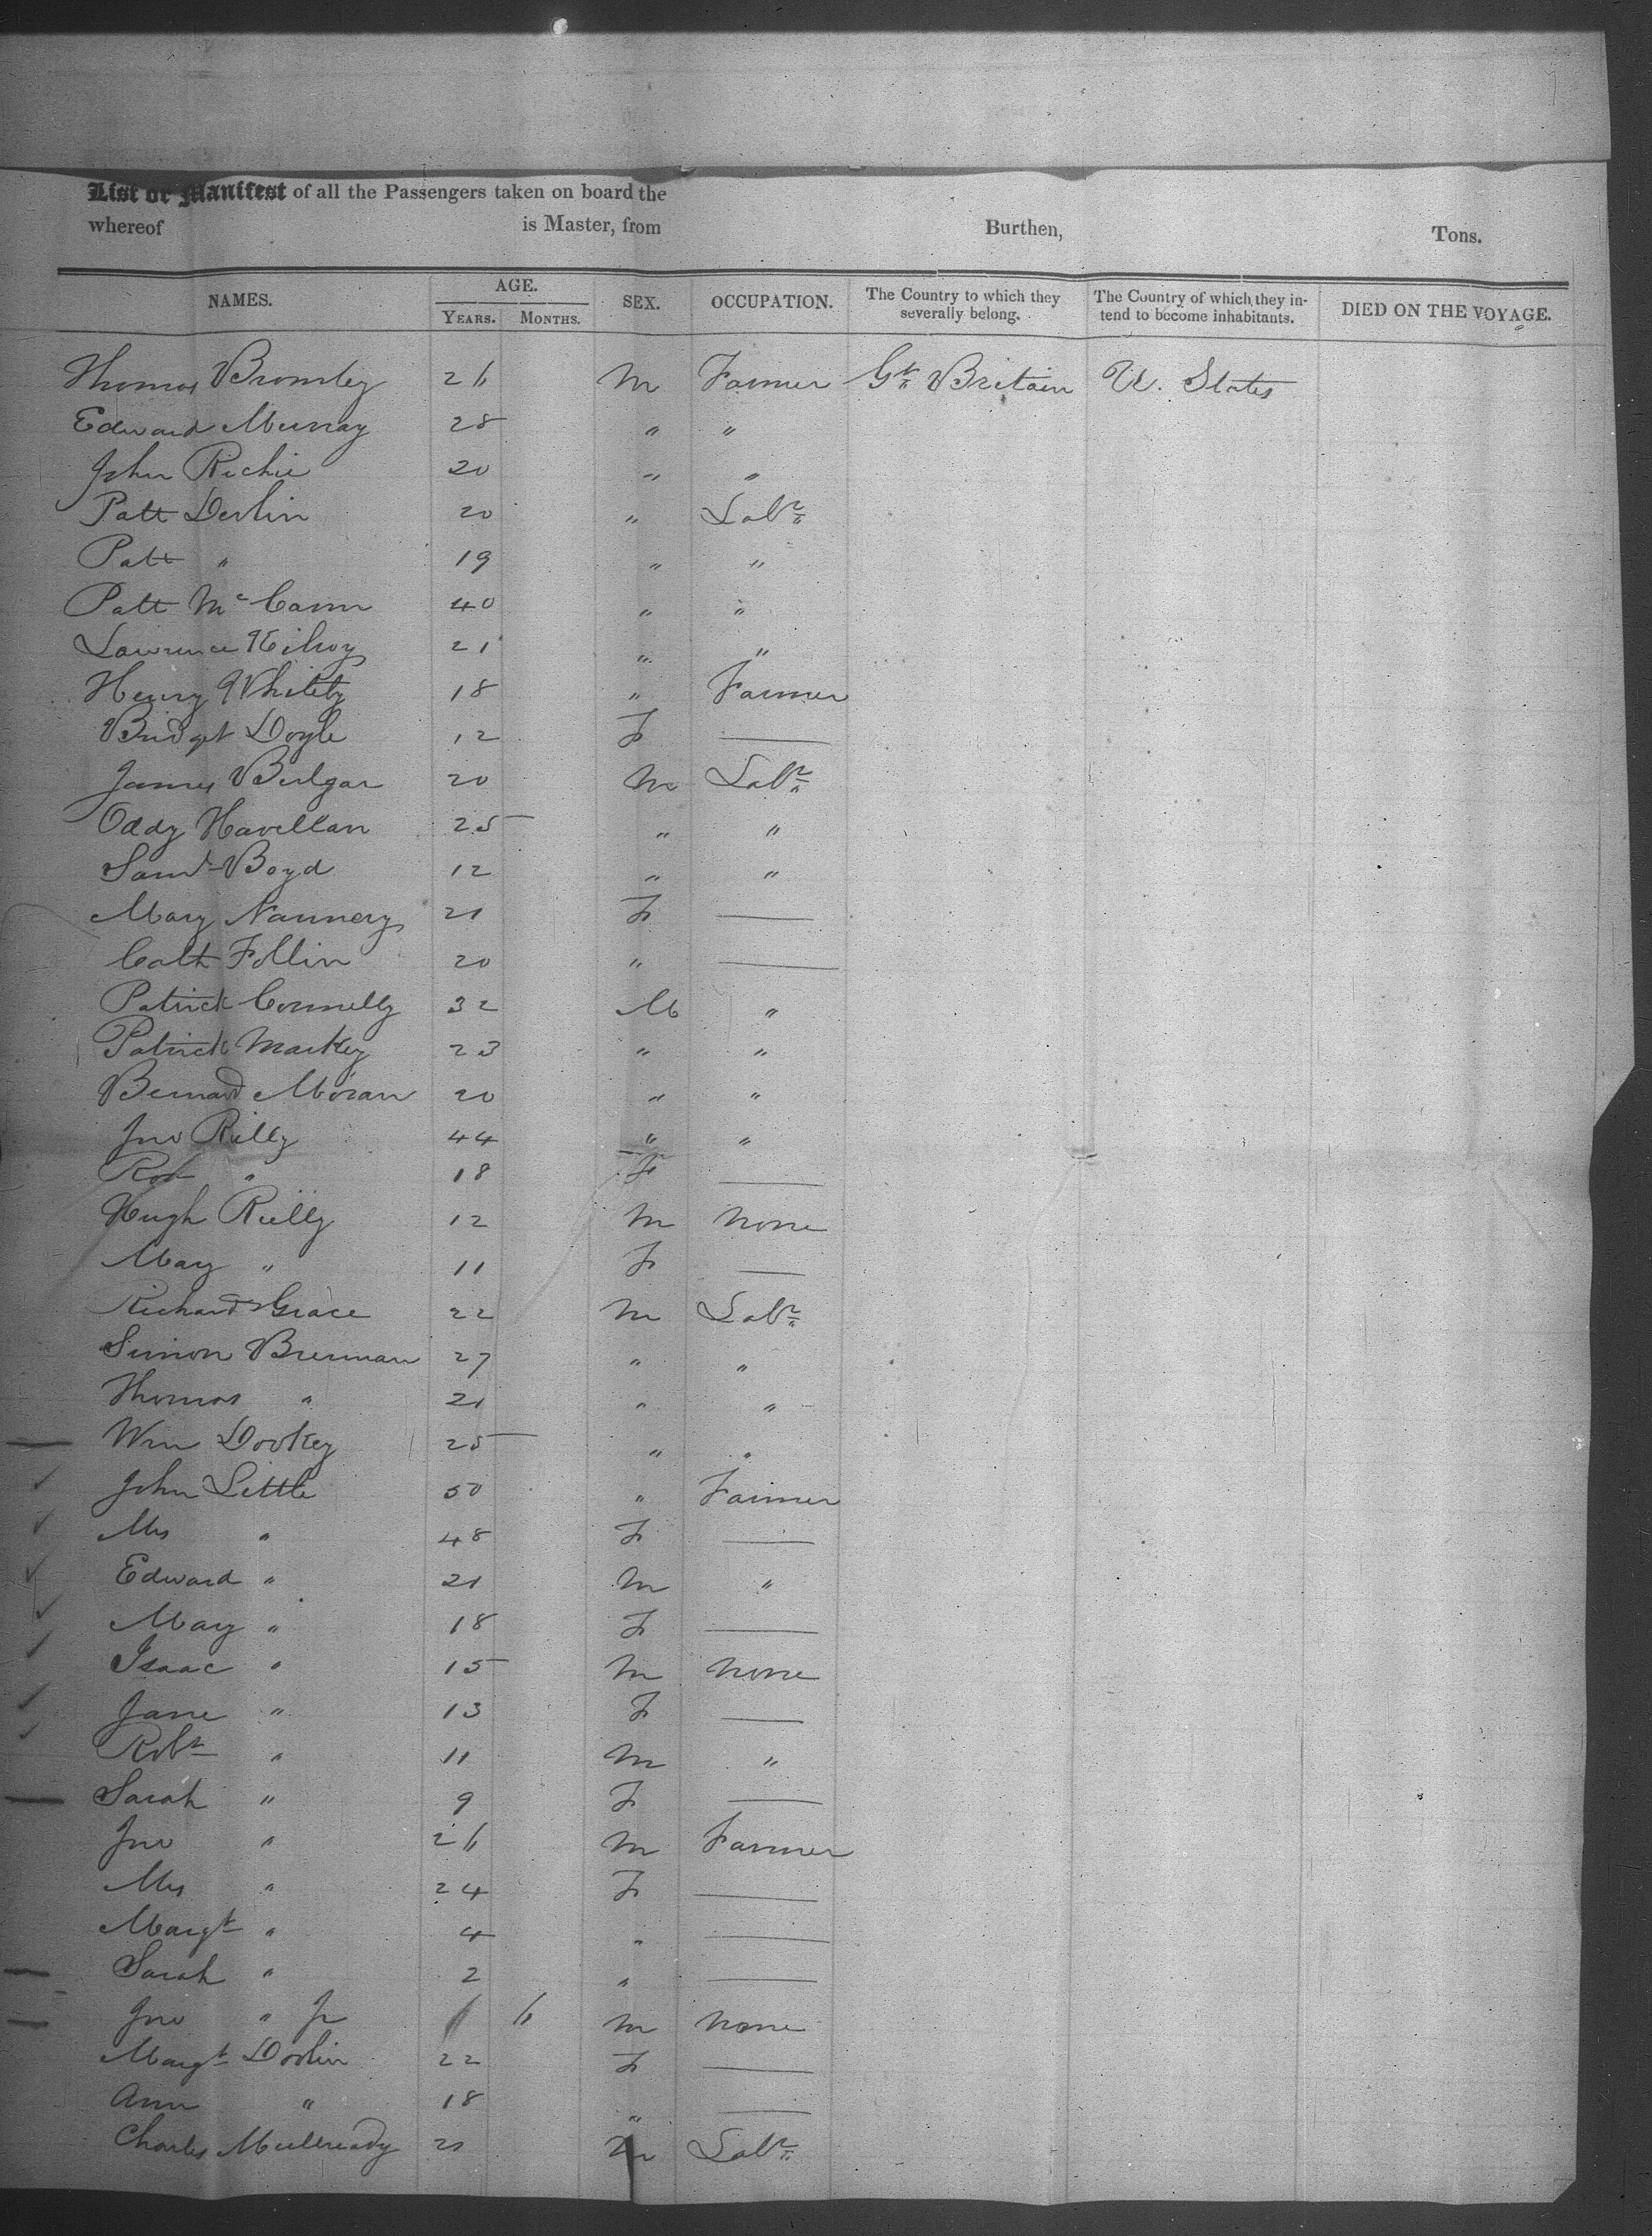 List or Manifest of all the Passengers taken on board the
whereof is Master, from Burthen, Tons.
NAMES. AGE. YEARS. MONTHS. SEX. OCCUPATION. The Country to which they severally belong. The Country of which they intend to become inhabitants. DIED ON THE VOYAGE.
Thomas Bromley 26 M Farmer Gt Britain U. States
Edward Murray 28 " "
John Richie 20 " "
Patt Devlin 20 " Labr
Patt " 19 " "
Patt McCann 40 " "
Lawrence Kilroy 21 " "
Henry Whitety 18 " Farmer
Bridget Doyle 12 F —
James Bulgar 20 M Labr
Oddy Havellan 25 " "
Saml Boyd 12 " "
Mary Nannery 21 F —
Cath Follin 20 " —
Patrick Connelly 32 M "
Patrick Markey 23 " "
Bernard Moran 20 " "
Jno Rilly 44 " "
" 18 F —
Hugh Rielly 12 M none
Mary " 11 F —
Richard Grace 22 M Labr
Simon Brennan 27 " "
Thomas " 21 " "
Wm Dooley 25 " "
John Little 50 " Farmer
Mrs " 48 F —
Edward " 21 M "
Mary " 18 F —
Isaac " 15 M none
Jane " 13 F —
Robt " 11 M "
Sarah " 9 F —
Jno " 26 M Farmer
Mrs " 24 F —
Margt " 4 " —
Sarah " 2 " —
Jno " Jr 6 M none
Margt 22 F —
Ann " 18 " —
Charles Mullready 21 M Labr